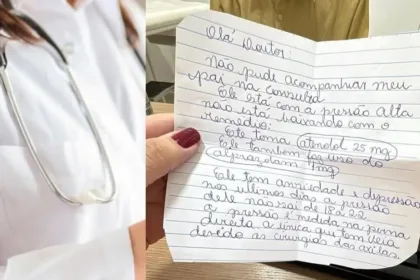 Olá Doutor.
Não pude acompanhar meu
pai na consulta
Ele está com a pressão alta
não está baixando com o
remédio:
Ele toma atenolol 25 mg
Ele também faz uso do
alprazolam 1mg
Ele tem ansiedade e depressão
nos ultimos dias a pressão
dele não sai de 18 a 22
a pressão é medida na perna
direita a única que tem veia
devido as cirurgias das axilas